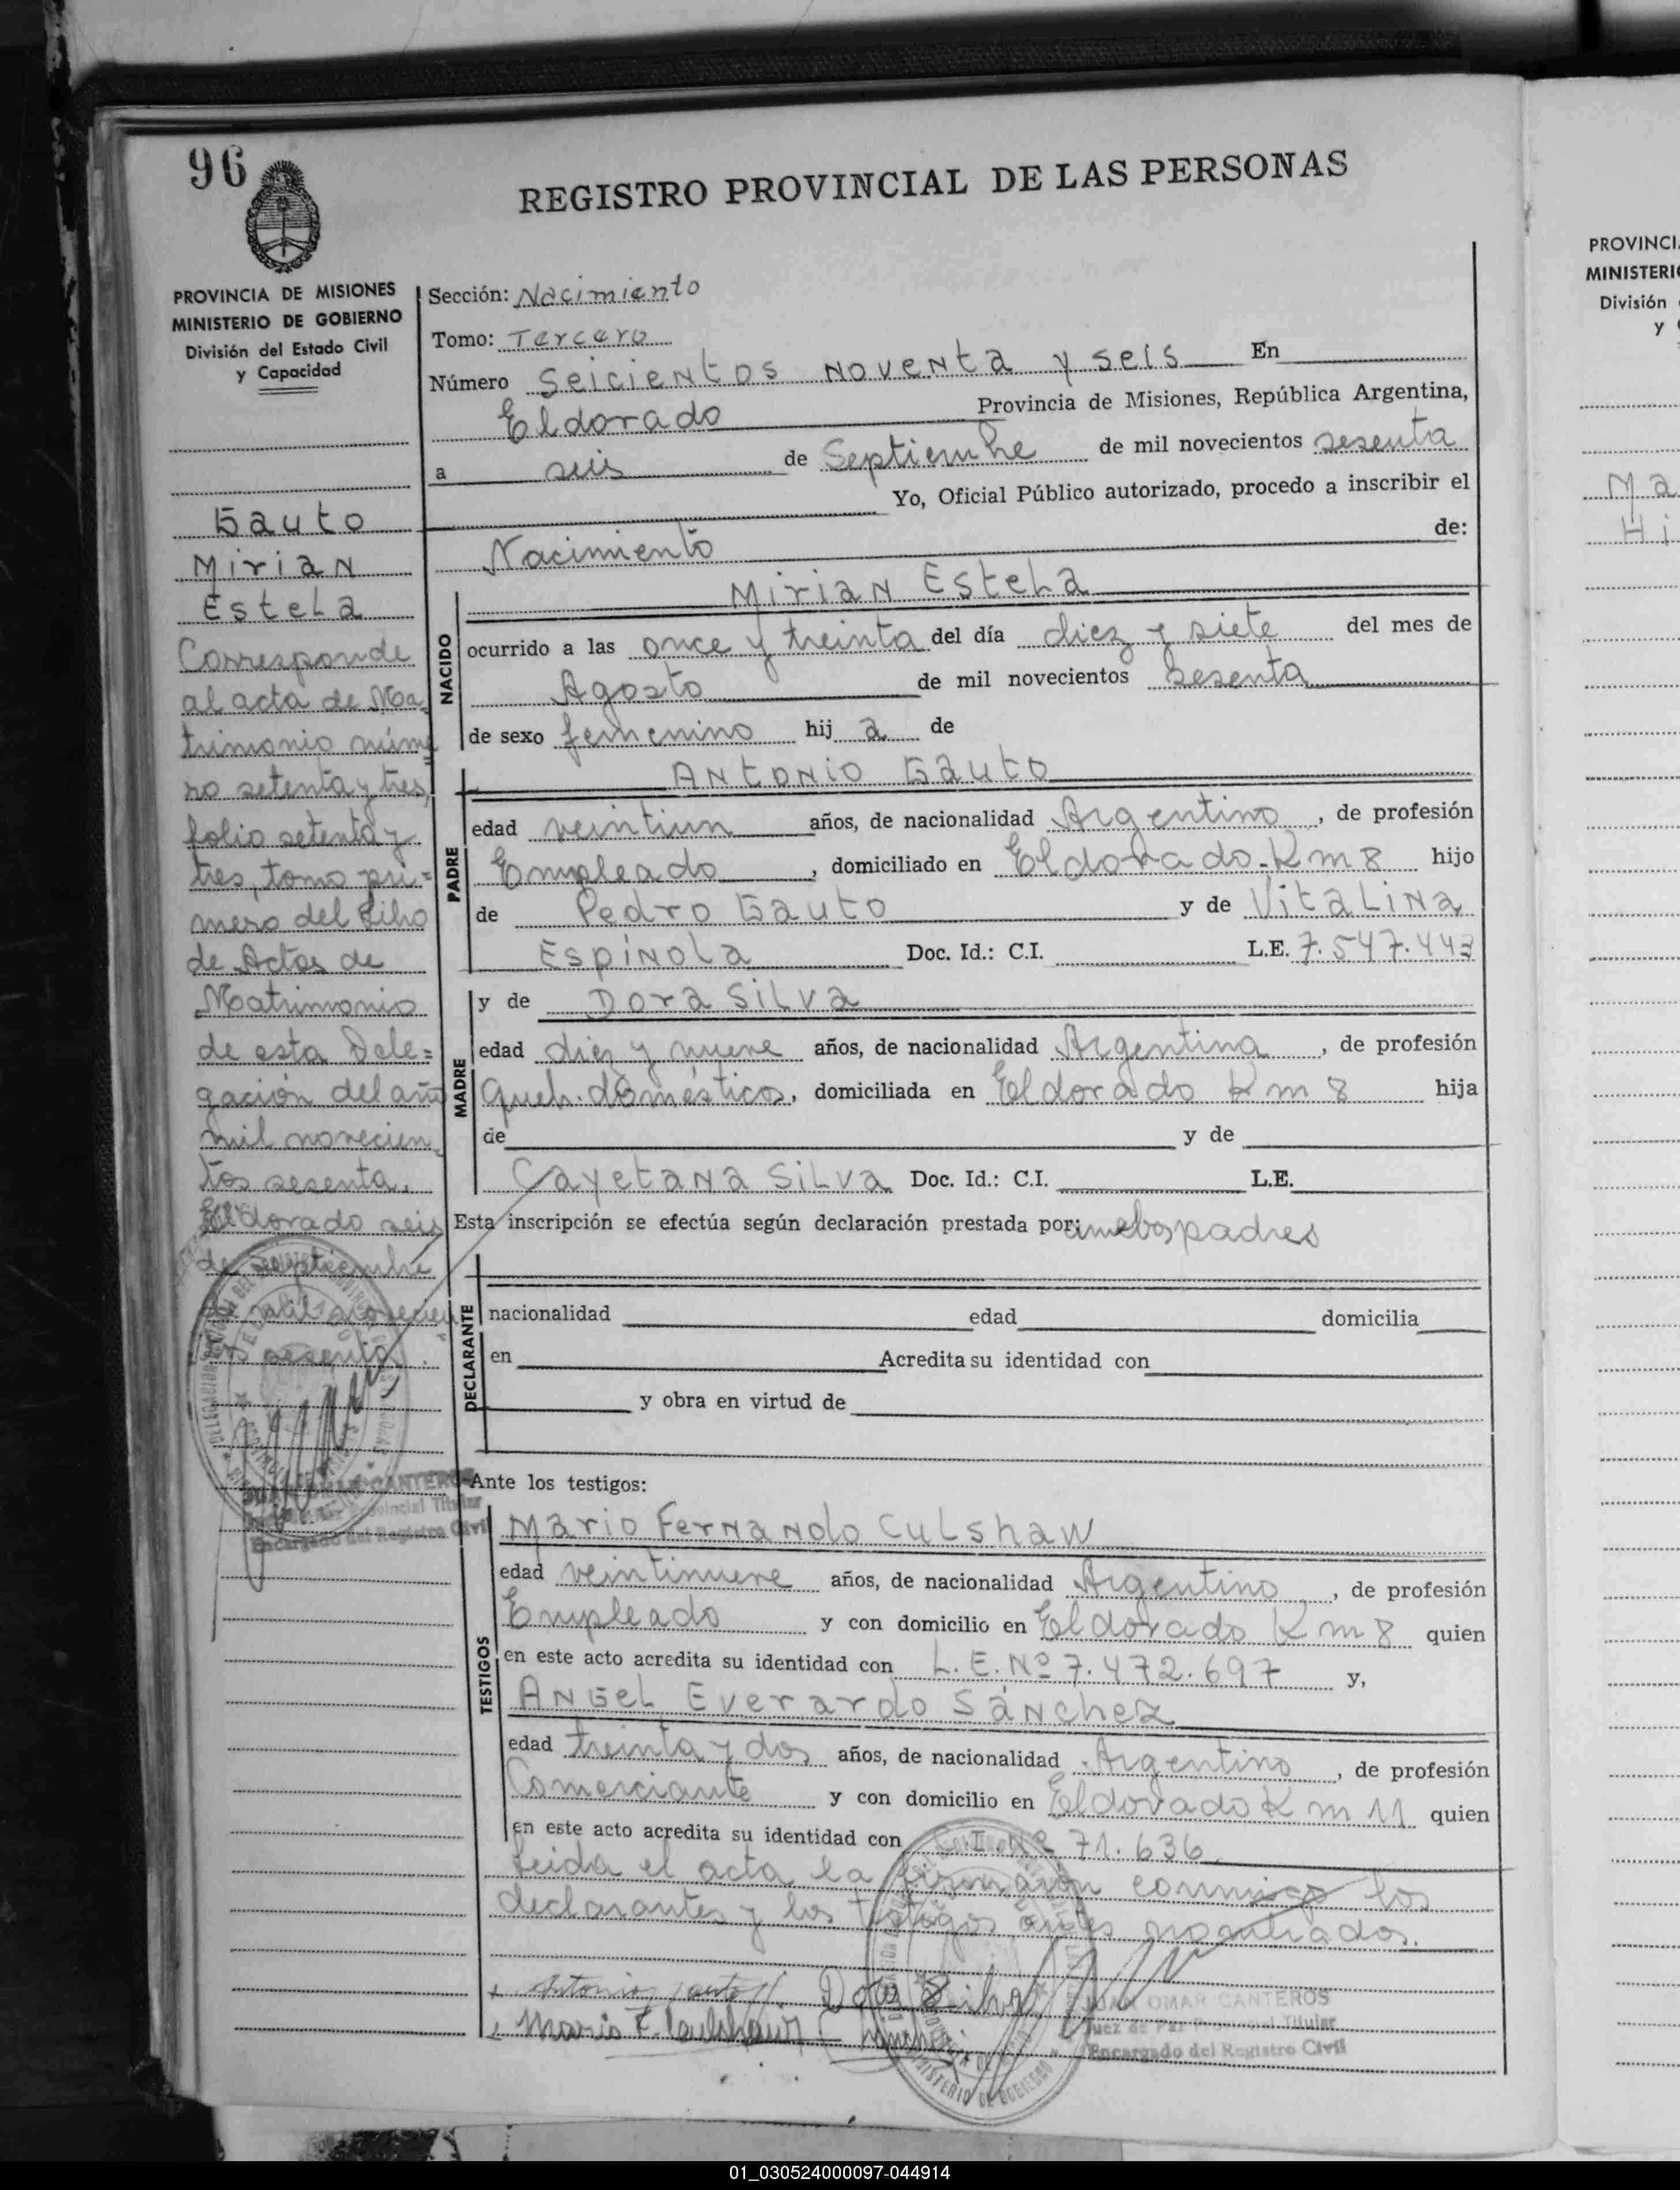 96
REGISTRO PROVINCIAL DE LAS PERSONAS
PROVINCIA DE MISIONES
MINISTERIO DE GOBIERNO
División del Estado Civil
y Capacidad
Gauto
Mirian
Estela
Corresponde
al acta de Ma
trimonio núme
ro setenta y tres,
folio setenta y
tres, tomo pri=
mero del Libro
de Actas de
Matrimonio
de esta Dele=
gación del año
mil novecien
tos sesenta.
Eldorado seis
de septiembre
de mil novecien
tos sesenta.
CANTEROS
Provincial Titular
Encargado del Registro Civil
Sección: Nacimiento
Tomo: Tercero
Número Seicientos noventa y seis En
Eldorado Provincia de Misiones, República Argentina,
a seis de Septiembre de mil novecientos sesenta
Yo, Oficial Público autorizado, procedo a inscribir el
Nacimiento de:
NACIDO
Mirian Estela
ocurrido a las once y treinta del día diez y siete del mes de
Agosto de mil novecientos sesenta
de sexo femenino hij a de
PADRE
Antonio Gauto
edad veintiun años, de nacionalidad Argentino, de profesión
Empleado, domiciliado en Eldorado-Km 8 hijo
de Pedro Gauto y de Vitalina
Espínola Doc. Id.: C.I. L.E. 7.547.443
MADRE
y de Dora Silva
edad diez y nueve años, de nacionalidad Argentina, de profesión
queh. domésticos, domiciliada en Eldorado Km 8 hija
de y de
Cayetana Silva Doc. Id.: C.I. L.E.
Esta inscripción se efectúa según declaración prestada por: ambos padres
DECLARANTE
nacionalidad edad domicilia
en Acredita su identidad con
y obra en virtud de
Ante los testigos:
TESTIGOS
Mario Fernando Culshaw
edad veintinueve años, de nacionalidad Argentino, de profesión
Empleado y con domicilio en Eldorado Km 8 quien
en este acto acredita su identidad con L.E. Nº 7.472.697 y,
Angel Everardo Sánchez
edad treinta y dos años, de nacionalidad Argentino, de profesión
Comerciante y con domicilio en Eldorado Km 11 quien
en este acto acredita su identidad con C.I. Nº 71.636
Leida el acta la firmaron conmigo los
declarantes y los testigos antes nombrados.
Antonio Gauto Dora Silva
Mario F. Culshaw
JUAN OMAR CANTEROS
Juez de Paz Provincial Titular
Encargado del Registro Civil
MINISTERIO DE GOBIERNO
PROVINCI
MINISTERI
División
y
Ma
Hi
01_030524000097-044914